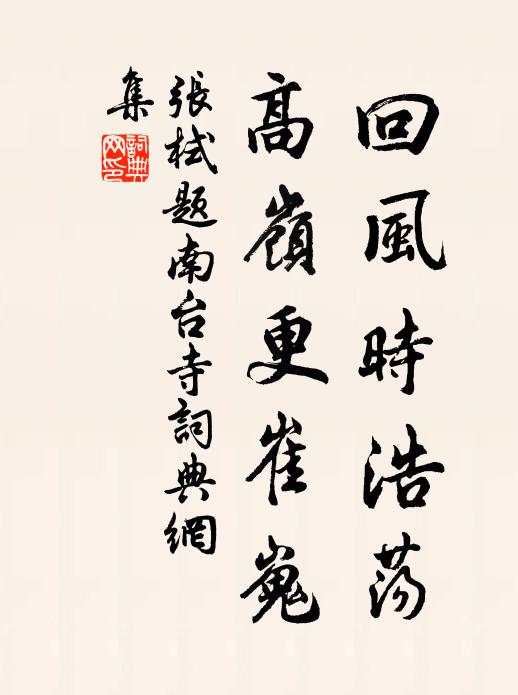 回風時浩荡
高嶺更崔嵬
張栻题南台寺詞典網
集
詞典
网印